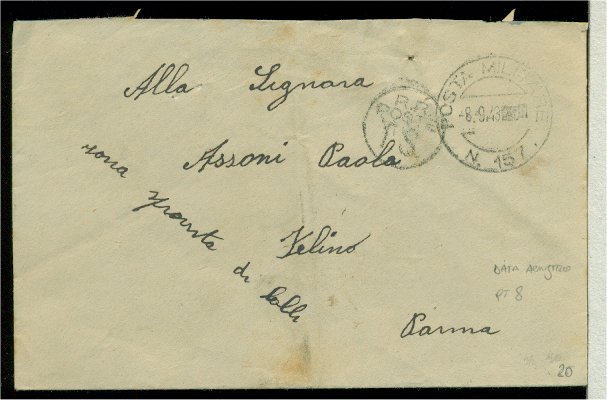 Alla Signora
Assoni Paola
Velino
Parma
zona sprovvista di bolli
POSTA MILITARE
-8.9.43
N. 157.
DATA ARMISTIZIO
PT 8
20